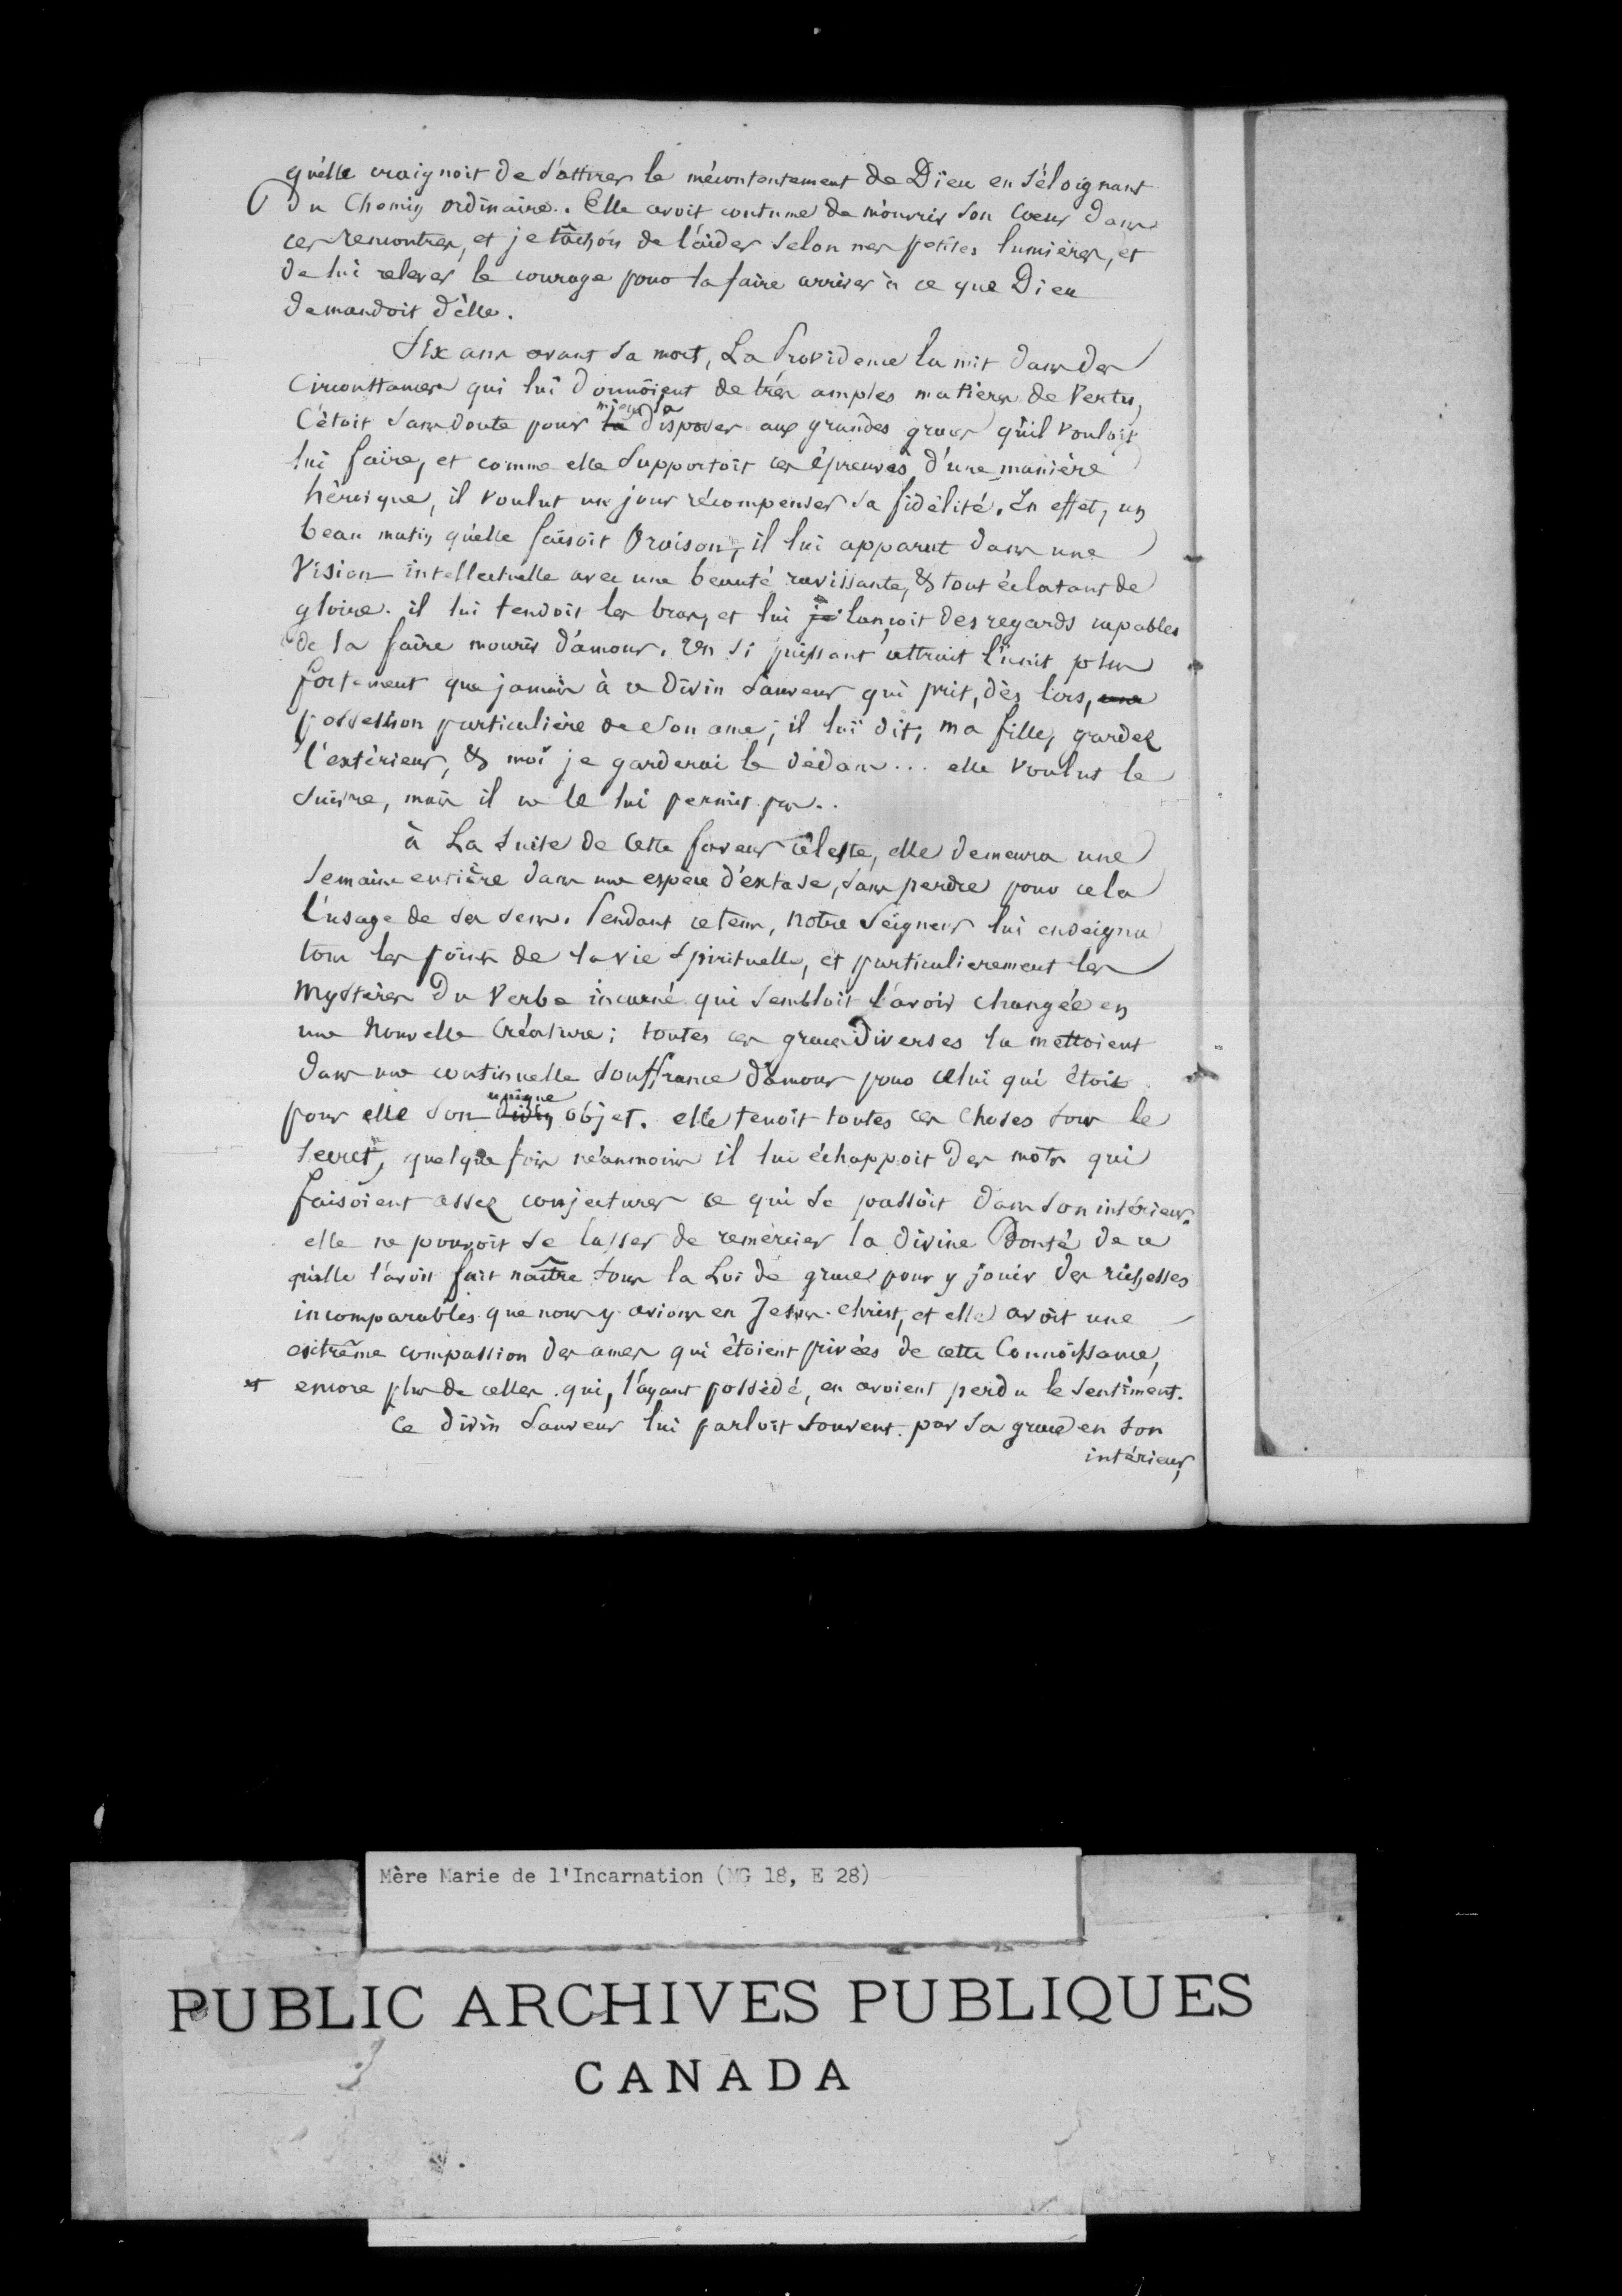 qu'elle craignoit de s'attirer le mécontentement de Dieu en s'éloignant
du Chemin ordinaire. Elle avoit coutume de m'ouvrir son Coeur dans
ces rencontres, et je tâchois de l'aider selon mes petites lumières, et
de lui relever le courage pour la faire arriver à ce que Dieu
demandoit d'elle.
Six ans avant sa mort, La Providence la mit dans des
Circonstances qui lui donnoient de très amples matières de Vertu,
mieux la
C'étoit sans doute pour la disposer aux grandes graces qu'il vouloit
lui faire, et comme elle supportoit ces épreuves d'une manière
héroique, il voulut un jour récompenser sa fidélité. En effet, un
beau matin qu'elle faisoit Oraison, il lui apparut dans une
Vision intellectuelle avec une beauté ravissante, & tout éclatant de
gloire. il lui tendoit les bras, et lui je lançoit des regards capables
de la faire mourir d'amour. Un si puissant attrait l'unit plus
fortement que jamais à ce Divin Sauveur qui prit, dès lors, une
possession particulière de son ame; il lui dit, ma fille, gardez
l'extérieur, & moi je garderai le dedans... elle voulut le
suivre, mais il ne le lui permit pas..
à La suite de cette faveur céleste, elle demeura une
semaine entière dans une espèce d'extase, sans perdre pour cela
l'usage de ses sens. Pendant ce tems, Notre Seigneur lui enseigna
tous les points de la vie spirituelle, et particulierement les
Mystères du Verbe incarné qui sembloit l'avoir changée en
une Nouvelle Créature; toutes ces graces Diverses la mettoient
dans une continuelle souffrance d'amour pour celui qui étoit
unique
pour elle son divin objet. elle tenoit toutes ces choses sous le
secret, quelque fois néanmoins il lui échappoit des mots qui
faisoient assez conjecturer ce qui se passoit dans son intérieur.
elle ne pouvoit se lasser de remercier la divine Bonté de ce
qu'elle l'avoit fait naître sous la Loi de grace pour y jouir des richesses
incomparables que nous y avions en Jesus-Christ, et elle avoit une
extrême compassion des ames qui étoient privées de cette Connoissance,
et encore plus de celles qui, l'ayant possédé, en avoient perdu le sentiment.
Ce divin Sauveur lui parloit souvent par sa grace en son
intérieur,
Mère Marie de l'Incarnation (MG 18, E 28)
PUBLIC ARCHIVES PUBLIQUES
CANADA